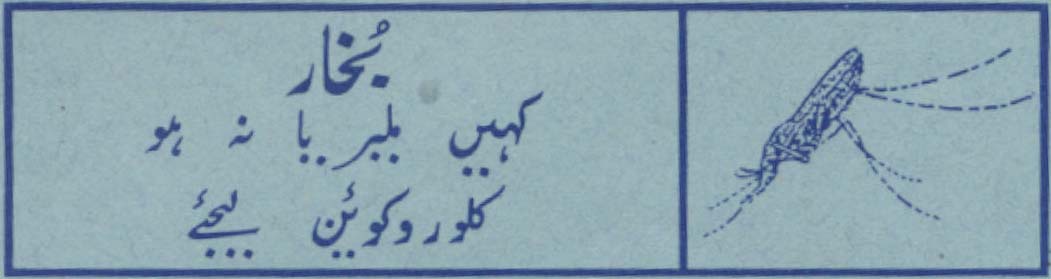 بُخار
کہیں ملیریا نہ ہو
کلوروکوئین لیجئے